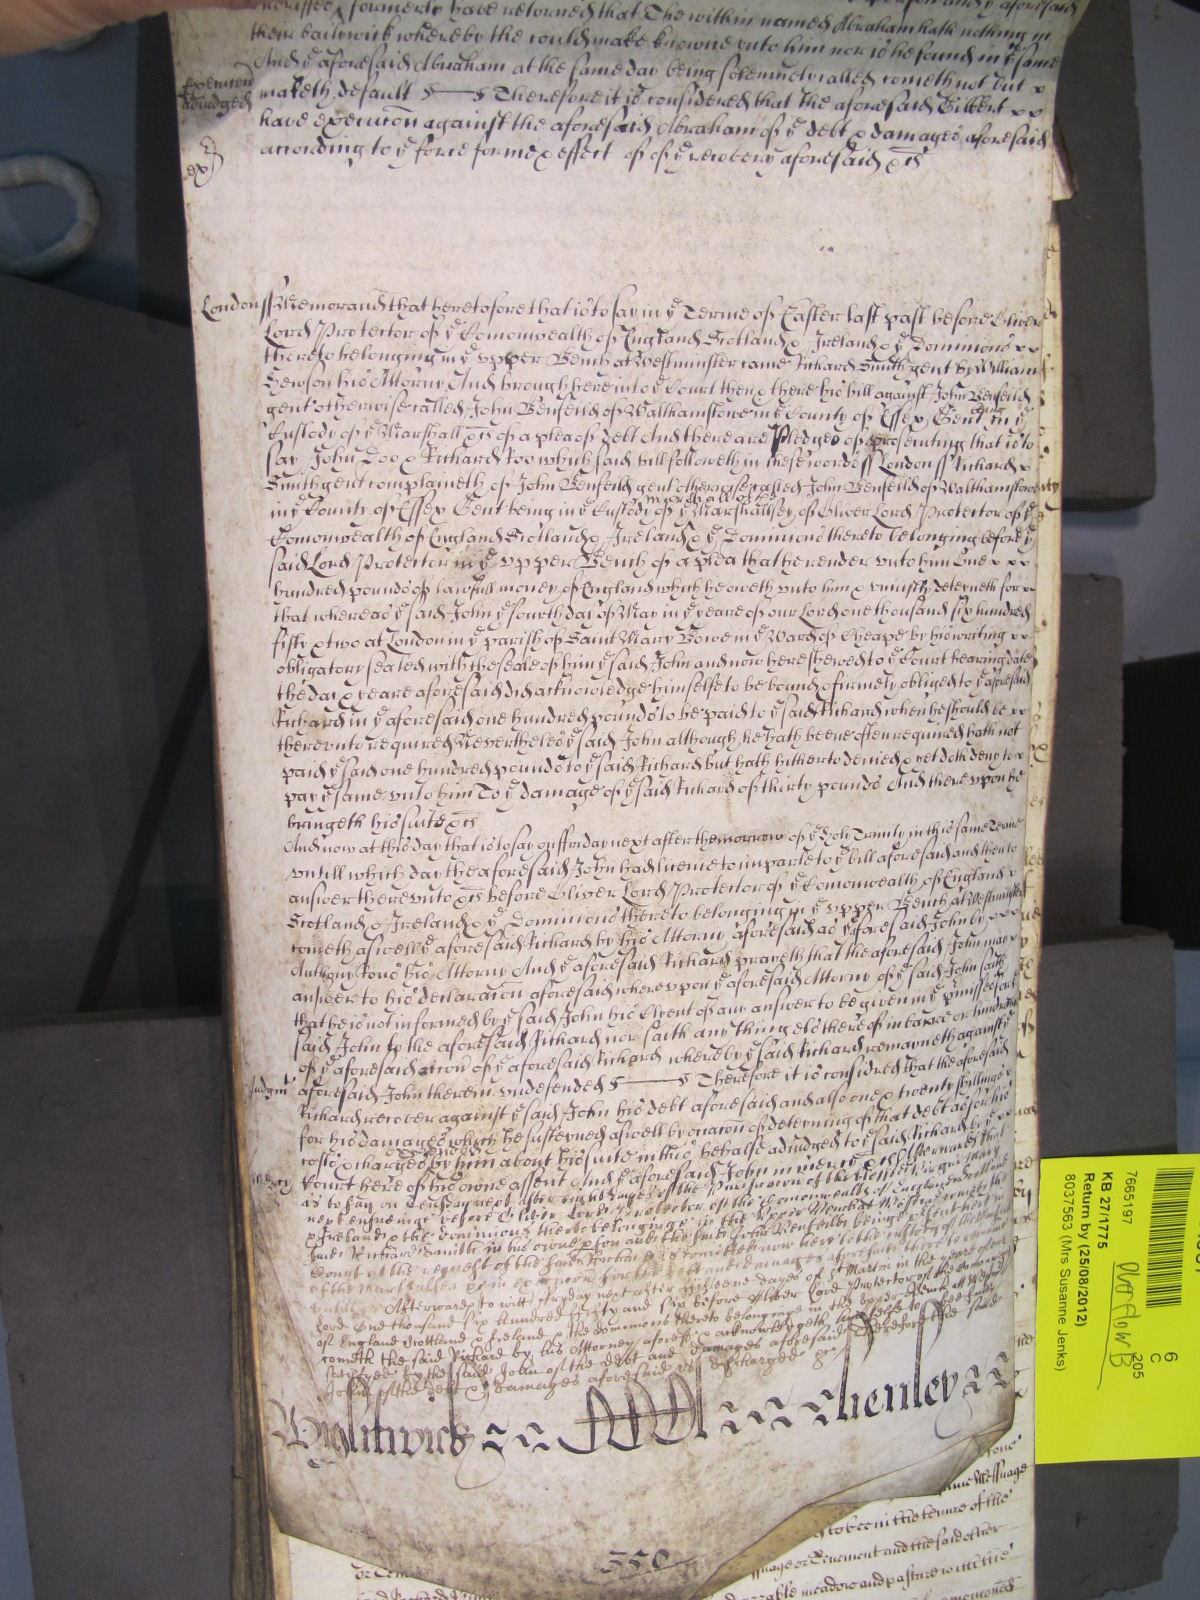 formerly have returned that The within named Abraham hath nothing in
their bailywick whereby the could make knowne unto him nor is he found in ye same
And ye aforesaid Abraham at the same day being solemnely called cometh not but
Execucon adiudged
maketh default Therefore it is considered that the aforesaid Gilbert
have execucon against the aforesaid Abraham of ye debt & damages aforesaid
according to ye force forme & effect of ye recovery aforesaid &c
London ss Memorand that heretofore that is to say in ye Terme of Easter last past before Oliver
Lord Protector of ye Comonwealth of England Scotland & Ireland & ye Dominions
thereto belonging in ye upper Bench at Westminster came Richard Smith gent by William
his Attorny And brough here into ye Court then & there his bill against John Benfeild
gent otherwise called John Benfeild of Walthamstowe in ye County of Essex Gent being in ye
Custody of ye Marshall &c of a plea of debt And there are Pledges of prosecuting that is to
say John Doo & Richard Roo which said bill followeth in these words ss London ss Richard
Smith gent complaineth of John Benfeild gent otherwise called John Benfeild of Walthamstowe
in ye County of Essex Gent being in ye Custody of ye marshall of ye Marshallsey of Oliver Lord Protector of ye
Comonwealth of England Scotland & Ireland & ye Dominions thereto belonging before ye
said Lord Protector in ye upper Bench of a plea that he render unto him One
hundred pounds of lawfull money of England which he oweth unto him & uniustly deteyneth for
that whereas ye said John ye fourth day of May in ye yeare of our Lord one thousand six hundred
fifty & two at London in ye parish of Saint Mary Bowe in ye Ward of Cheape by his writing
obligatory sealed with the seale of him ye said John and now here shewed to ye Court bearing date
the day & yeare aforesaid did acknowledge himselfe to be bound & firmely obliged to ye aforesaid
Richard in ye aforesaid one hundred pounds to be paid to ye said Richard when he should be
thereunto required Neverthelesse ye said John although he hath beene often required hath not
paid ye said one hundred pounds to ye said Richard but hath hitherto denied & yet doth deny to
pay ye same unto him To ye damage of ye said Richard of thirty pounds And thereupon he
bringeth his suite &c
And now at this day that is to say on ffriday next after the morrow of ye Holy Trinity in this same Terme
untill which day the aforesaid John had licence to imparle to ye bill aforesaid and then to
answer thereunto &c before Oliver Lord Protector of ye Comonwealth of England
Scotland & Ireland & ye Dominions thereto belonging in ye upper Bench at Westminster
cometh aswell ye aforesaid Richard by his Attorny aforesaid as ye aforesaid John by
Anthony his Attorny And ye aforesaid Richard prayeth that the aforesaid John may
answer to his declaracon aforesaid whereupon ye aforesaid Attorny of ye said John saith
that he is not informed by ye said John his Clyent of any answer to be given in ye premisses for ye
said John to the aforesaid Richard nor saith any thing els thereof in barre or
of ye aforesaid accon of ye aforesaid Richard whereby ye said Richard remayneth against ye
Judgmt
aforesaid John therein undefended Therefore it is considered that the aforesaid
Richard recover against ye said John his debt aforesaid and also one & twenty shillings
for his damages which he susteyned aswell by occacon of deteyning of that debt as for his
costs & charges by him about his suite in this behalfe adiudged to ye said Richard by ye
Court here of his owne assent And ye aforesaid John in mercy &c Afterwards that
mercy
is to say on next after eight dayes of the Purificacon of the Blessed Virgin Mary
next ensueinge before Oliver Lord Protector of the Comonwealth of England Scotland
& Ireland & the dominions thereto belonginge in the Upper Bench at Westminster cometh the
said Richard Smith in his owne person and the said John Benfeild beinge present here in
Court at the request of the said Richard is comitted now here to the custody of the Marshall
of the Marshalsea in execucon for the debt and damages aforesaid there to remaine
untill &c Afterwards to witt next after fifteene dayes of St Martin in the yeare of our
Lord One thousand six hundred fifty and six before Oliver Lord Protector of the Comonwealth
of England Scotland & Ireland & the dominions thereto belonginge in the Upper Bench att Westmr
cometh the said Richard by his Attorney aforesd & acknowledgeth himselfe to bee fully
satisfyed by the said John of the debt and damages aforesaid Therefore the said
John of the debt & damages aforesaid is discharged &c
Wightwick Henley
550
same Messuage
to bee in the tenure of the
Messuage or Tenement and the said other
meadow and pasture with the
7665197
KB 27/1775
Return by (25/08/2012)
8037563 (Mrs Susanne Jenks)
6
C
205